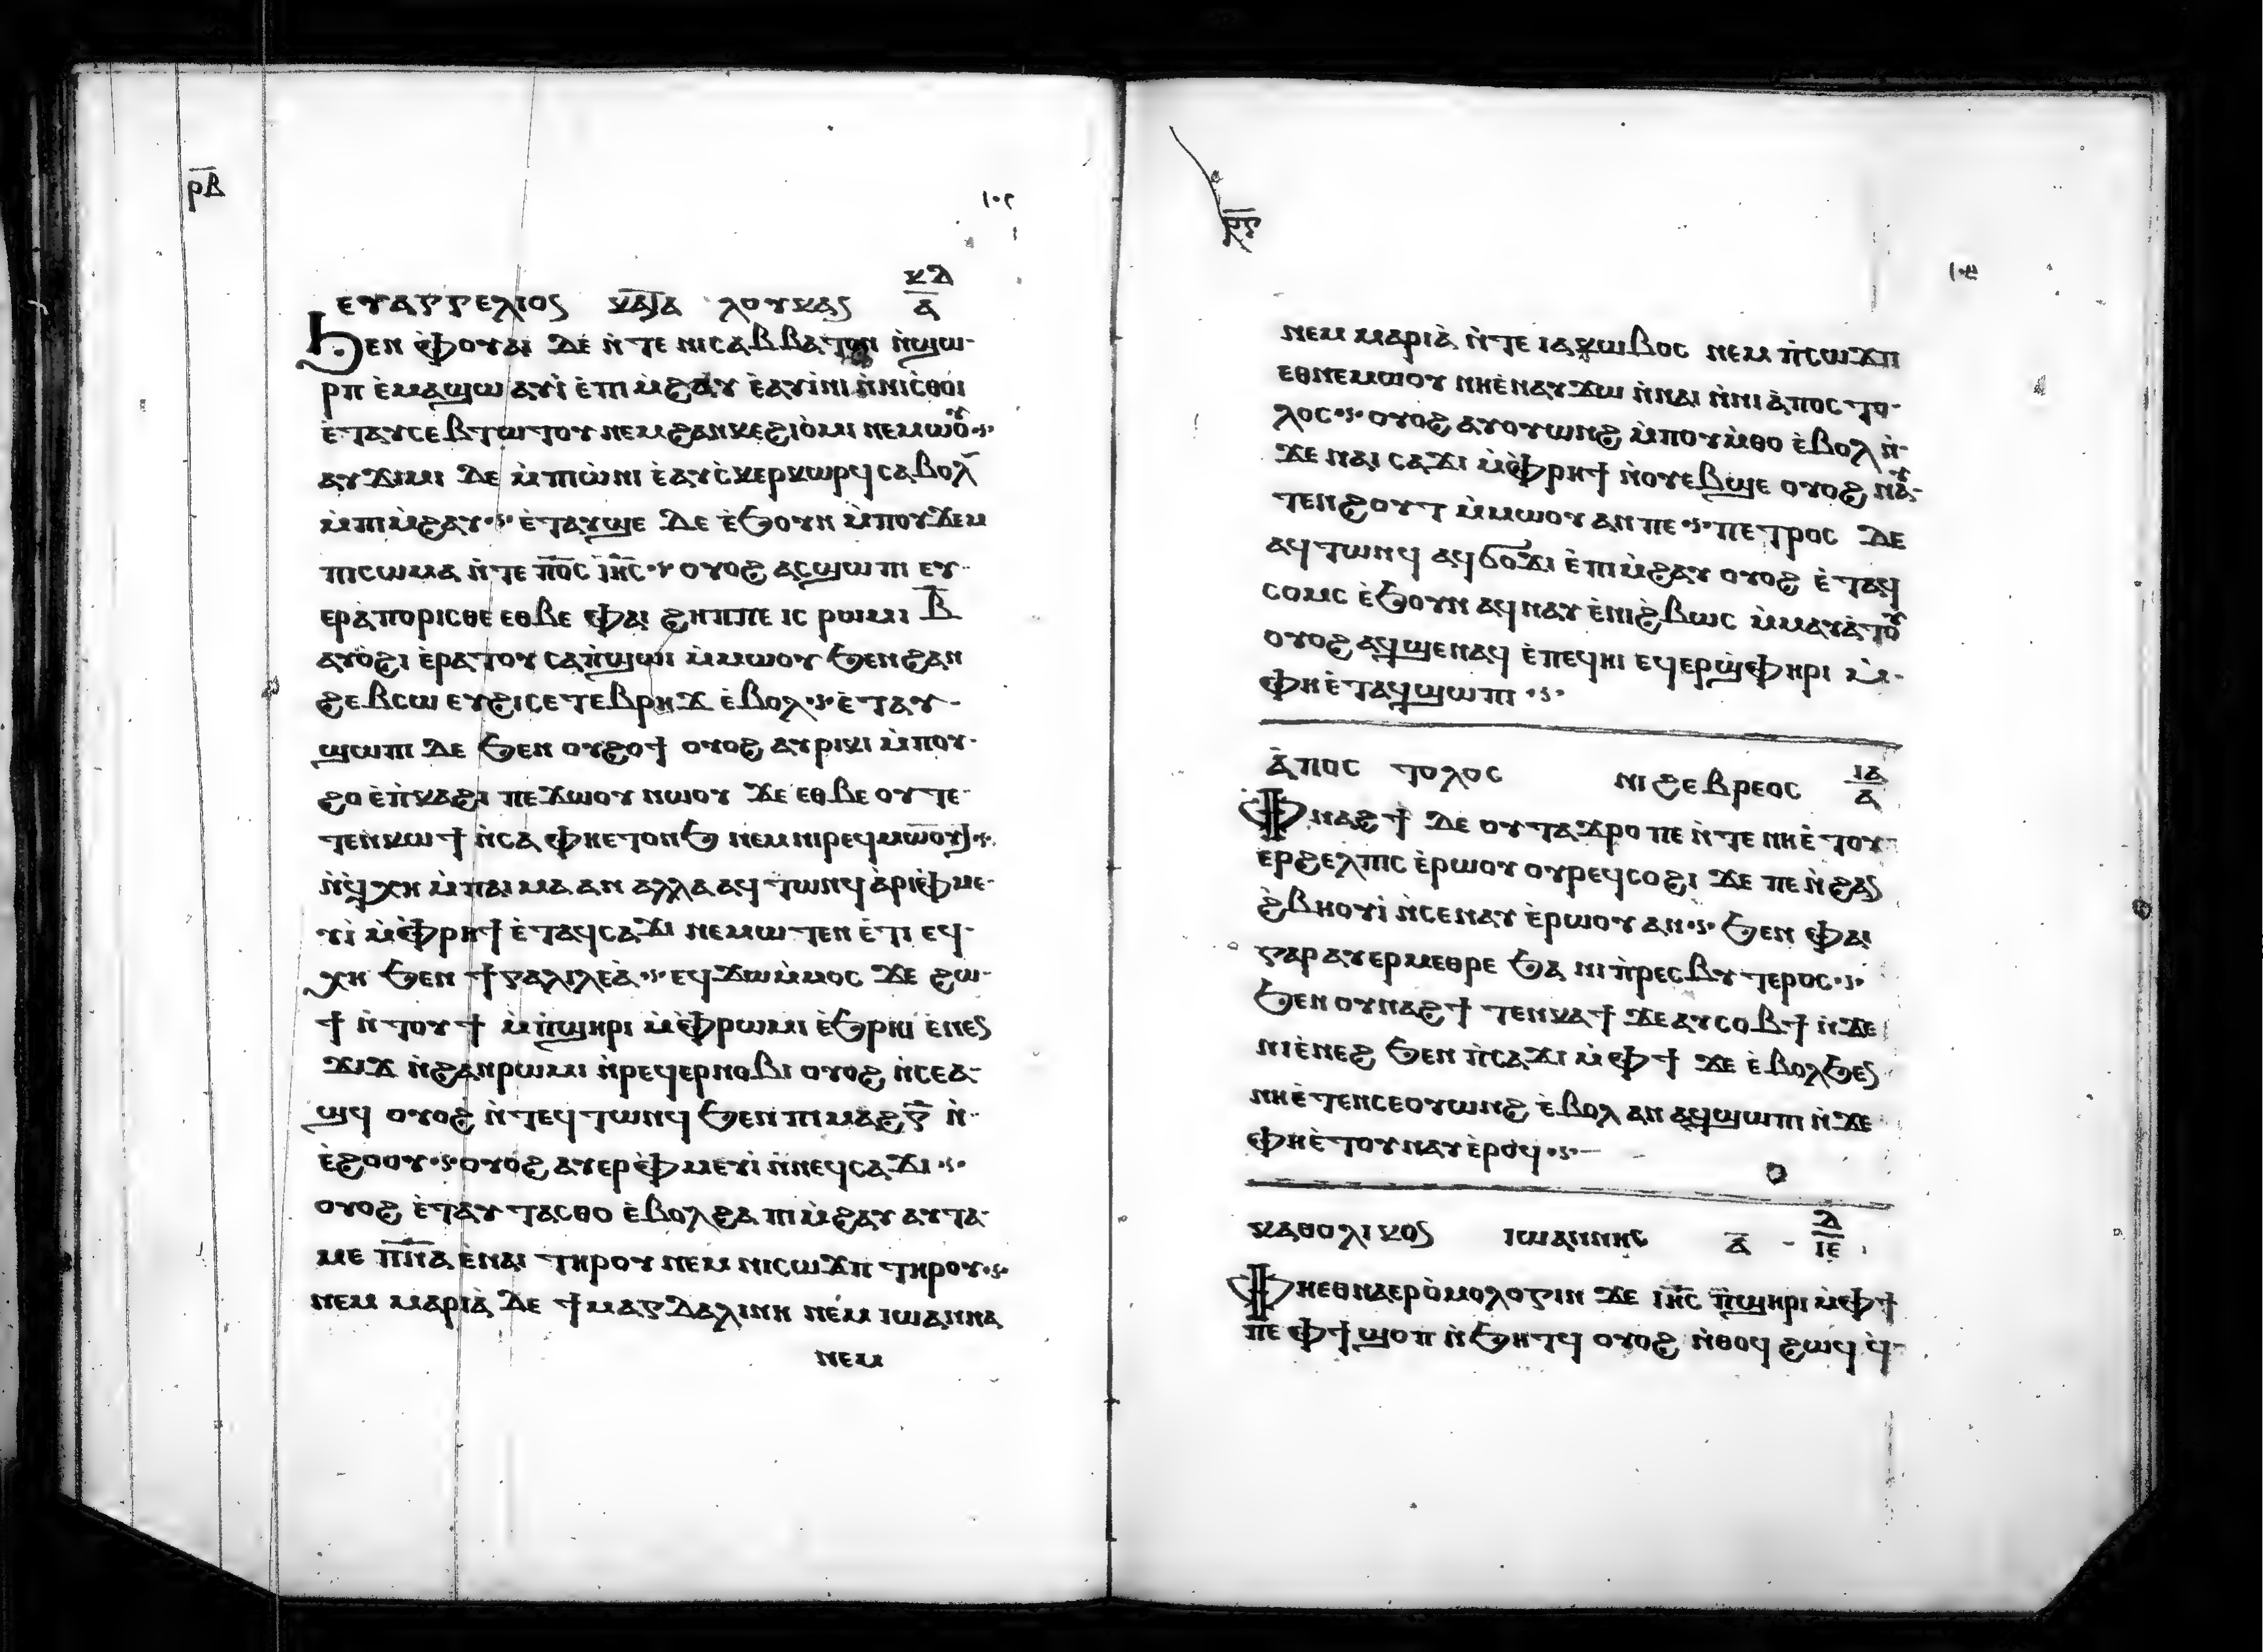 ⲣ̅ⲃ̅
١٠٢
ⲉⲩⲁⲅⲅⲉⲗⲓⲟⲥ ⲕⲁⲧⲁ ⲗⲟⲩⲕⲁⲥ ⲕⲇ ⲁ̅
Ϧⲉⲛ ⲫ̀ⲟⲩⲁⲓ ⲇⲉ ⲛ̀ⲧⲉ ⲛⲓⲥⲁⲃⲃⲁⲧⲟⲛ ⲛ̀ϣⲱ-
ⲣⲡ ⲉ̀ⲙⲁϣⲱ ⲁⲩⲓ̀ ⲉ̀ⲡⲓⲙ̀ϩⲁⲩ ⲉ̀ⲁⲩⲓ̀ⲛⲓ ⲛ̀ⲛⲓⲥ̀ⲑⲟⲓ
ⲉ̀ⲧⲁⲩⲥⲉⲃⲧⲱⲧⲟⲩ ⲛⲉⲙϩⲁⲛⲕⲉϩⲓⲟ̀ⲙⲓ ⲛⲉⲙⲱⲟⲩ·ⲋ·
ⲁⲩϫⲓⲙⲓ ⲇⲉ ⲙ̀ⲡⲓⲱ̀ⲛⲓ ⲉ̀ⲁⲩⲥ̀ⲕⲉⲣⲕⲱⲣϥ ⲥⲁⲃⲟⲗ
ⲙ̀ⲡⲓⲙ̀ϩⲁⲩ·ⲋ· ⲉ̀ⲧⲁⲩϣⲉ ⲇⲉ ⲉ̀ϧⲟⲩⲛ ⲙ̀ⲡⲟⲩϫⲉⲙ
ⲡⲓⲥⲱⲙⲁ ⲛ̀ⲧⲉ ⲡ̅ⲟ̅ⲥ̅ ⲓ̅ⲏ̅ⲥ̅·ⲋ· ⲟⲩⲟϩ ⲁⲥϣⲱⲡⲓ ⲉⲩ-
ⲉⲣⲁ̀ⲡⲟⲣⲓⲥⲑⲉ ⲉⲑⲃⲉ ⲫⲁⲓ ϩⲏⲡⲡⲉ ⲓⲥ ⲣⲱⲙⲓ ⲃ̅
ⲁⲩⲟ̀ϩⲓ ⲉ̀ⲣⲁⲧⲟⲩ ⲥⲁⲡ̀ϣⲱⲓ ⲙ̀ⲙⲱⲟⲩ ϧⲉⲛϩⲁⲛ
ϩⲉⲃⲥⲱ ⲉⲩϩⲓⲥⲉⲧⲉⲃⲣⲏϫ ⲉ̀ⲃⲟⲗ·ⲋ· ⲉ̀ⲧⲁⲩ-
ϣⲱⲡⲓ ⲇⲉ ϧⲉⲛ ⲟⲩϩⲟϯ ⲟⲩⲟϩ ⲁⲩⲣⲓⲕⲓ ⲙ̀ⲡⲟⲩ-
ϩⲟ ⲉ̀ⲡ̀ⲕⲁϩⲓ ⲡⲉϫⲱⲟⲩ ⲛⲱⲟⲩ ϫⲉ ⲉⲑⲃⲉ ⲟⲩ ⲧⲉ-
ⲧⲉⲛⲕⲱϯ ⲛ̀ⲥⲁ ⲫⲏⲉⲧⲟⲛϧ ⲛⲉⲙ ⲛⲓⲣⲉϥⲙⲱⲟⲩⲧ·ⲋ·
ⲛ̀ϥ̀ⲭⲏ ⲙ̀ⲡⲁⲓ ⲙⲁ ⲁⲛ ⲁⲗⲗⲁ ⲁϥⲧⲱⲛϥ ⲁ̀ⲣⲓⲫ̀ⲙⲉ-
ⲩⲓ̀ ⲙ̀ⲫ̀ⲣⲏϯ ⲉ̀ⲧⲁϥⲥⲁϫⲓ ⲛⲉⲙⲱⲧⲉⲛ ⲉ̀ⲧⲓ ⲉϥ-
ⲭⲏ ϧⲉⲛ ϯⲅⲁⲗⲓⲗⲉⲁ̀·ⲋ· ⲉϥϫⲱⲙ̀ⲙⲟⲥ ϫⲉ ϩⲱ-
ϯ ⲛ̀ⲧⲟⲩϯ ⲙ̀ⲡ̀ϣⲏⲣⲓ ⲙ̀ⲫ̀ⲣⲱⲙⲓ ⲉ̀ϧⲣⲏⲓ ⲉ̀ⲛⲉⲛ
ϫⲓϫ ⲛ̀ϩⲁⲛⲣⲱⲙⲓ ⲛ̀ⲣⲉϥⲉⲣⲛⲟⲃⲓ ⲟⲩⲟϩ ⲛ̀ⲥⲉⲁ-
ϣϥ ⲟⲩⲟϩ ⲛ̀ⲧⲉϥⲧⲱⲛϥ ϧⲉⲛ ⲡⲓⲙⲁϩⲅ̅ ⲛ̀-
ⲉ̀ϩⲟⲟⲩ·ⲋ· ⲟⲩⲟϩ ⲁⲩⲉⲣⲫ̀ⲙⲉⲩⲓ̀ ⲛ̀ⲛⲉϥⲥⲁϫⲓ·ⲋ·
ⲟⲩⲟϩ ⲉ̀ⲧⲁⲩⲧⲁⲥⲑⲟ ⲉ̀ⲃⲟⲗϩⲁ ⲡⲓⲙ̀ϩⲁⲩ ⲁⲩⲧⲁ-
ⲙⲉ ⲡⲓⲓ̅ⲁ̅ ⲉ̀ⲛⲁⲓ ⲧⲏⲣⲟⲩ ⲛⲉⲙ ⲛⲓⲥⲱϫⲡ ⲧⲏⲣⲟⲩ·ⲋ·
ⲛⲉⲙ ⲙⲁⲣⲓⲁ̀ ⲇⲉ ϯⲙⲁⲅⲇⲁⲗⲓⲛⲏ ⲛⲉⲙ ⲓⲱⲁⲛⲛⲁ
ⲛⲉⲙ
ⲛⲉⲙ ⲙⲁⲣⲓⲁ̀ ⲛ̀ⲧⲉ ⲓⲁⲕⲱⲃⲟⲥ ⲛⲉⲙ ⲡ̀ⲥⲱϫⲡ
ⲉⲑⲛⲉⲙⲱⲟⲩ ⲛⲏⲉ̀ⲛⲁⲩϫⲱ ⲛ̀ⲛⲁⲓ ⲛ̀ⲛⲓⲁ̀ⲡⲟⲥⲧⲟ-
ⲗⲟⲥ·ⲋ· ⲟⲩⲟϩ ⲁⲩⲟⲩⲱⲛϩ ⲙ̀ⲡⲟⲩⲙ̀ⲑⲟ ⲉ̀ⲃⲟⲗ ⲛ̀-
ϫⲉ ⲛⲁⲓ ⲥⲁϫⲓ ⲙ̀ⲫ̀ⲣⲏϯ ⲛ̀ⲟⲩⲉⲃϣⲉ ⲟⲩⲟϩ ⲛⲁⲩ-
ⲧⲉⲛϩⲟⲩⲧ ⲙ̀ⲙⲱⲟⲩ ⲁⲛ ⲡⲉ·ⲋ· ⲡⲉⲧⲣⲟⲥ ⲇⲉ
ⲁϥⲧⲱⲛϥ ⲁϥϭⲟϫⲓ ⲉ̀ⲡⲓⲙ̀ϩⲁⲩ ⲟⲩⲟϩ ⲉ̀ⲧⲁϥ
ⲥⲟⲙⲥ ⲉ̀ϧⲟⲩⲛ ⲁϥⲛⲁⲩ ⲉ̀ⲛⲓϩ̀ⲃⲱⲥ ⲙ̀ⲙⲁⲩⲁ̀ⲧⲟⲩ
ⲟⲩⲟϩ ⲁϥϣⲉⲛⲁϥ ⲉ̀ⲡⲉϥⲏⲓ ⲉϥⲉⲣϣ̀ⲫⲏⲣⲓ ⲙ̀-
ⲫⲏⲉ̀ⲧⲁϥϣⲱⲡⲓ·ⲋ·
ⲁ̀ⲡⲟⲥⲧⲟⲗⲟⲥ ⲛⲓϩⲉⲃⲣⲉⲟⲥ ⲓⲁ ⲁ̅
Ⲫⲛⲁϩϯ ⲇⲉ ⲟⲩⲧⲁϫⲣⲟ ⲡⲉ ⲛ̀ⲧⲉ ⲛⲏⲉ̀ⲧⲟⲩ-
ⲉⲣϩⲉⲗⲡⲓⲥ ⲉ̀ⲣⲱⲟⲩ ⲟⲩⲣⲉϥⲥⲟϩⲓ ϫⲉ ⲡⲉ ⲛ̀ϩⲁⲛ
ϩ̀ⲃⲏⲟⲩⲓ̀ ⲛ̀ⲥⲉⲛⲁⲩ ⲉ̀ⲣⲱⲟⲩ ⲁⲛ·ⲋ· ϧⲉⲛ ⲫⲁⲓ
ⲅⲁⲣ ⲁⲩⲉⲣⲙⲉⲑⲣⲉ ϧⲁ ⲛⲓⲡ̀ⲣⲉⲥⲃⲩⲧⲉⲣⲟⲥ·ⲋ·
ϧⲉⲛ ⲟⲩⲛⲁϩϯ ⲧⲉⲛⲕⲁϯ ϫⲉ ⲁⲩⲥⲟⲃϯ ⲛ̀ϫⲉ
ⲛⲓⲉ̀ⲛⲉϩ ϧⲉⲛ ⲡ̀ⲥⲁϫⲓ ⲙ̀ⲫϯ ϫⲉ ⲉ̀ⲃⲟⲗϧⲉⲛ
ⲛⲏⲉ̀ⲧⲉⲛⲥⲉⲟⲩⲱⲛϩ ⲉ̀ⲃⲟⲗ ⲁⲛ ⲁϥϣⲱⲡⲓ ⲛ̀ϫⲉ
ⲫⲏⲉ̀ⲧⲟⲩⲛⲁⲩ ⲉ̀ⲣⲟϥ·ⲋ·
ⲕⲁⲑⲟⲗⲓⲕⲟⲥ ⲓⲱⲁⲛⲛⲏⲥ ⲁ̅ - ⲇ ⲓⲉ
Ⲫⲏⲉⲑⲛⲁⲉⲣⲟ̀ⲙⲟⲗⲟⲅⲓⲛ ϫⲉ ⲓ̅ⲏ̅ⲥ̅ ⲡ̀ϣⲏⲣⲓ ⲙ̀ⲫϯ
ⲡⲉ ⲫϯ ϣⲟⲡ ⲛ̀ϧⲏⲧϥ ⲟⲩⲟϩ ⲛ̀ⲑⲟϥ ϩⲱϥ ϥ̀-